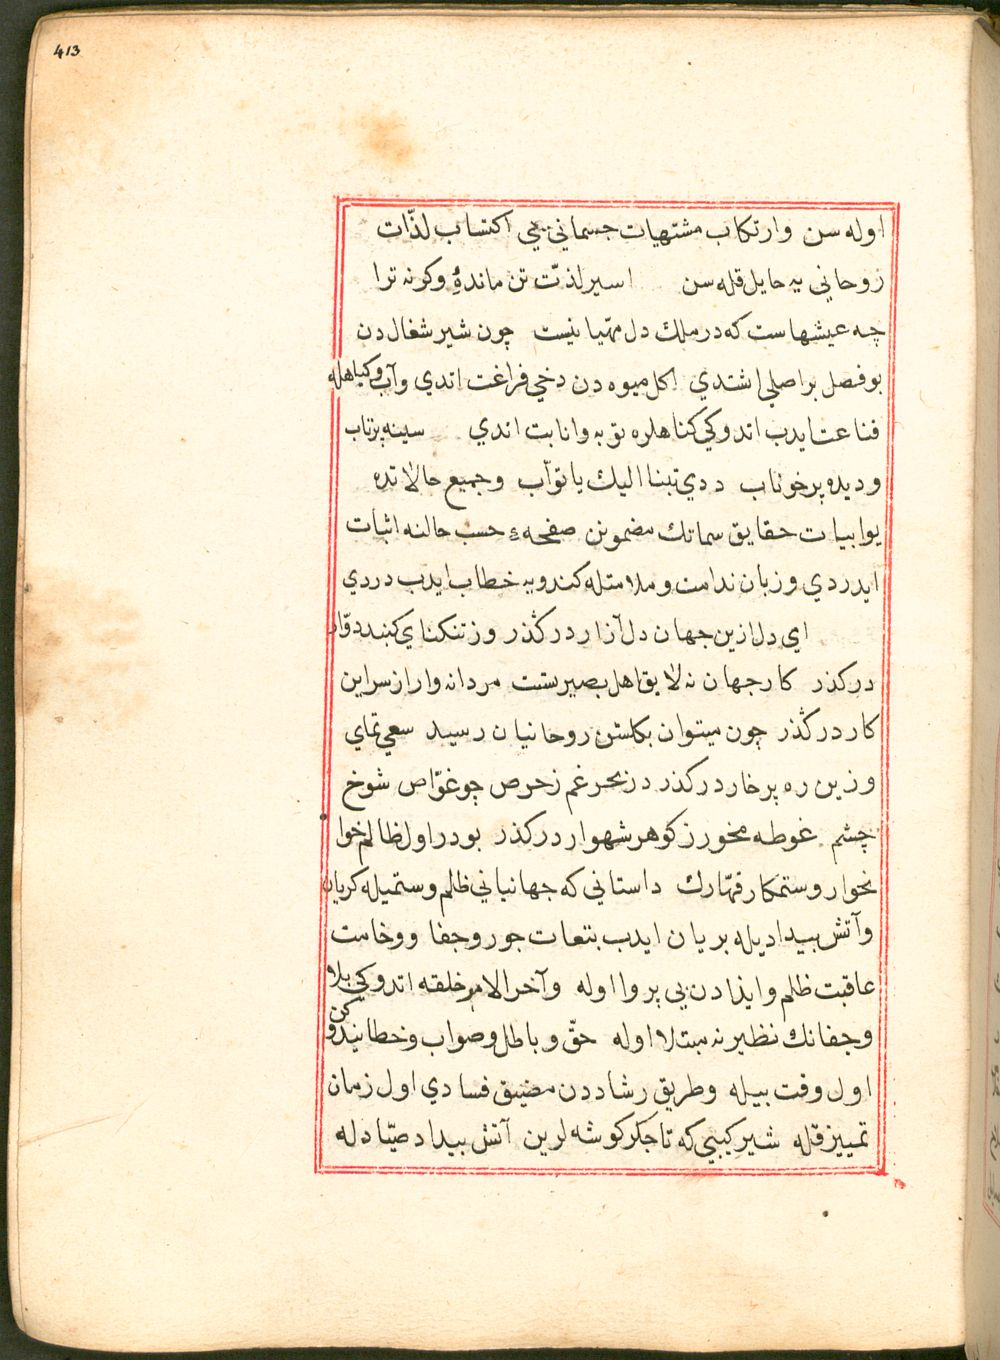 413
اوله سن وارتكاب مشتهيات جسماني يي اكتساب لذّات
روحاني يه حايل قله سن اسير لذّت تن ماندهٔ وكرنه ترا
چه عيشهاست كه در ملك دل مهّيا نيست چون شير شغال دن
بو فصل بر اصلي اشتدي اكل ميوه دن دخي فراغت اتدي وآب وكياهله
قناعت ايدب اندوكي كناهلره توبه وانابت اتدي سينه پرتاب
وديده پرخوناب ددي تبنا اليك يا توّاب وجميع حالاتده
بو ابيات حقايق سماتك مضمونن صفحهء حسب حالنه اثبات
ايدردي وزبان ندامت وملامتله كندويه خطاب ايدب دردي
اي دل ازين جهان دل آزار در كذر وز تنكناي كنبد دوّار
در كذر كار جهان نه لايق اهل بصيرتست مردانه وار از سر اين
كار در كذر چون ميتوان بكلشن روحانيان رسيد سعي نماي
وزين ره پر خار در كذر در بحر غم ز حرص چو غوّاص شوخ
چشم غوطه مخور ز كوهر شهوار در كذر بودر اول ظالم خوا
نخوار وستمكار قهّارك داستاني كه جهانياني ظلم وستميله كريان
وآتش بيداديله بريان ايدب بتعات جور وجفا ووخامت
عاقبت ظلم وايذادن بي پروا اوله وآخر الامر خلقه اتدوكي بلا
وجفانك نظيرنه مبتلا اوله حقّ وباطل وصواب وخطا نيدوكن
اول وقت بيله وطريق رشاددن مضيق فسادي اول زمان
تمييز قله شير كيبي كه تا جكر كوشه لرين آتش بيداد صيّادله